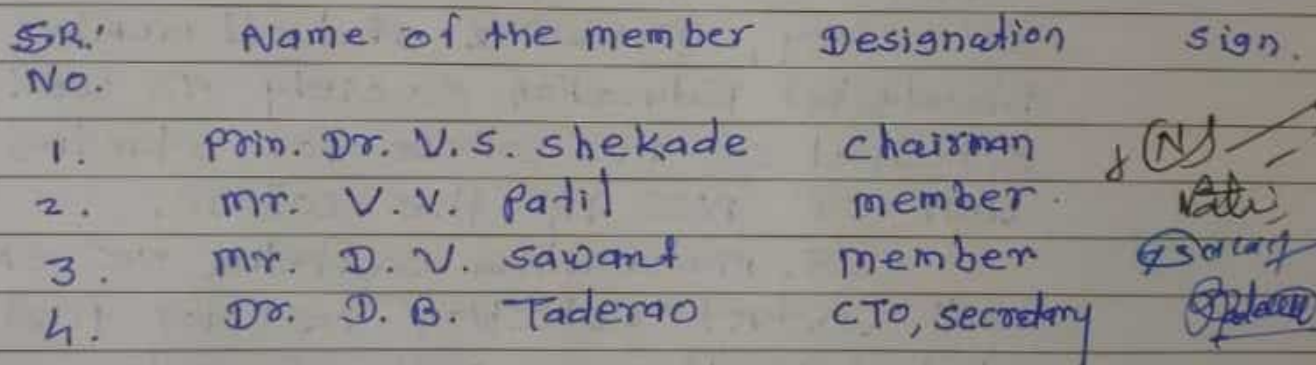 SR. Name of the member Designation Sign.
No.
1. Prin. Dr. V.S. Shekade Chairman
2. Mr. V.V. Patil member
3. Mr. D.V. Sawant member
4. Dr. D.B. Taderao CTO, Secretary